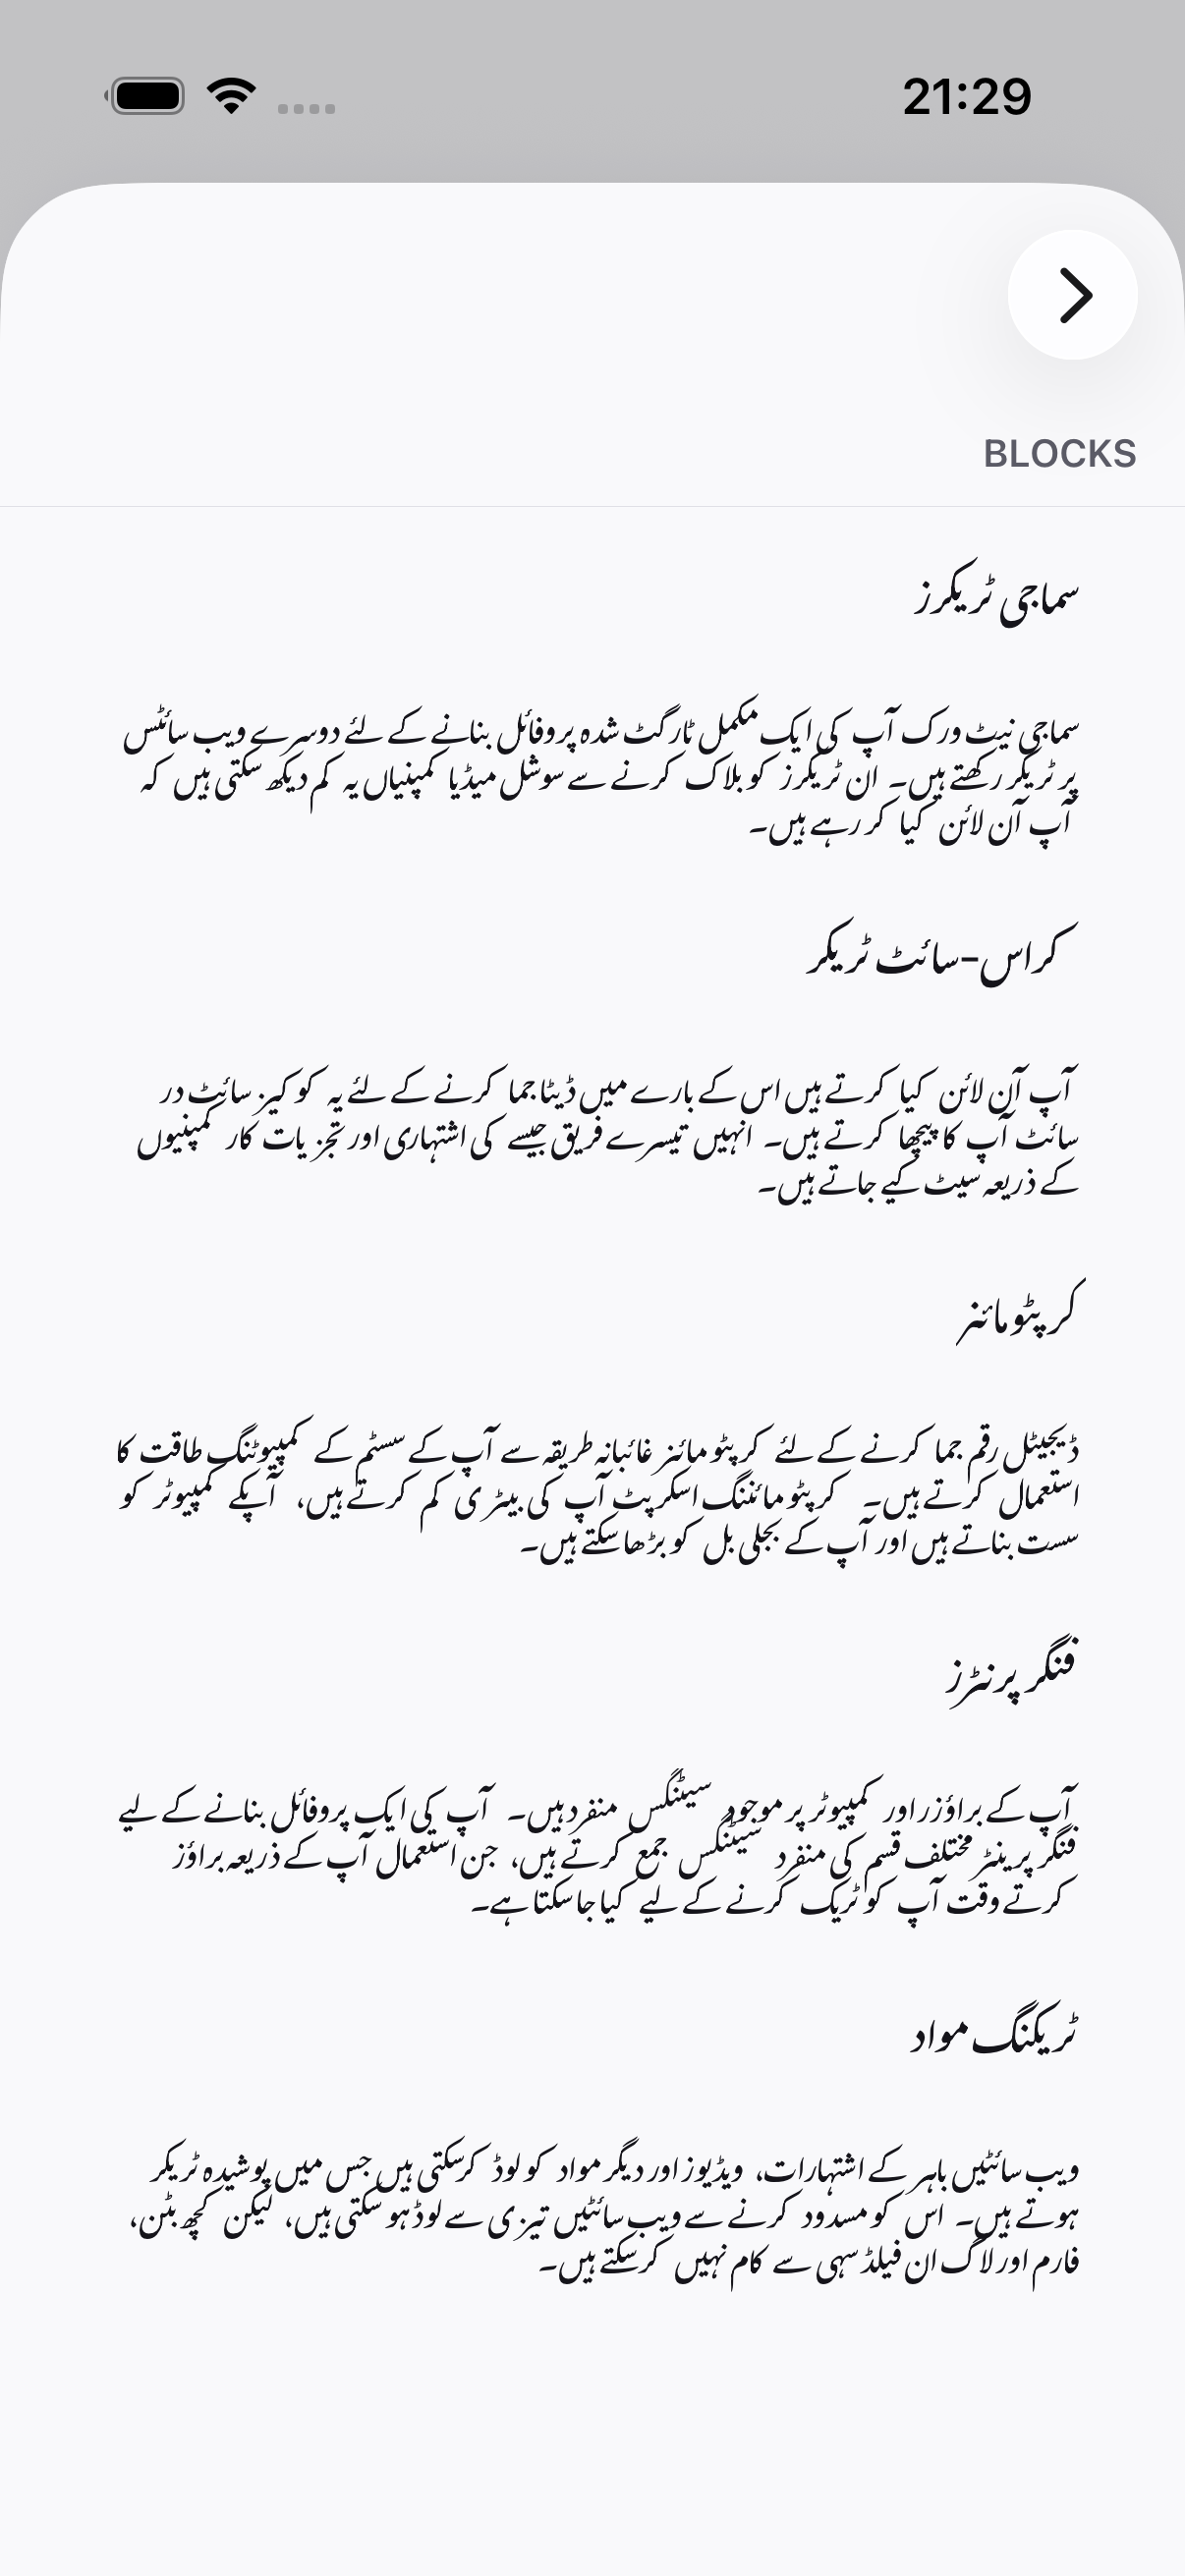 21:29
BLOCKS
سماجی ٹریکرز
سماجی نیٹ ورک آپ کی ایک مکمل ٹارگٹ شدہ پروفائل بنانے کے لئے دوسرے ویب سائٹس
پر ٹریکر رکھتے ہیں۔ ان ٹریکرز کو بلاک کرنے سے سوشل میڈیا کمپنیاں یہ کم دیکھ سکتی ہیں کہ
آپ آن لائن کیا کر رہے ہیں۔
کراس-سائٹ ٹریکر
آپ آن لائن کیا کرتے ہیں اس کے بارے میں ڈیٹا جما کرنے کے لئے یہ کوکیز سائٹ در
سائٹ آپ کا پیچھا کرتے ہیں۔ انہیں تیسرے فریق جیسے کی اشتہاری اور تجزیات کار کمپنیوں
کے ذریعہ سیٹ کیے جاتے ہیں۔
کرپٹومائنر
ڈیجیٹل رقم جما کرنے کے لئے کرپٹو مائنز غائبانہ طریقہ سے آپ کے سسٹم کے کمپیوٹنگ طاقت کا
استعمال کرتے ہیں۔ کرپٹو مائننگ اسکرپٹ آپ کی بیٹری کم کرتے ہیں، آپکے کمپیوٹر کو
سست بناتے ہیں اور آپ کے بجلی بل کو بڑھا سکتے ہیں۔
فنگر پرنٹرز
آپ کے براؤزر اور کمپیوٹر پر موجود سیٹنگس منفرد ہیں۔ آپ کی ایک پروفائل بنانے کے لیے
فنگر پرینٹر مختلف قسم کی منفرد سیٹنگس جمع کرتے ہیں، جن استعمال آپ کے ذریعہ براؤز
کرتے وقت آپ کو ٹریک کرنے کے لیے کیا جا سکتا ہے۔
ٹریکنگ مواد
ویب سائٹیں باہر کے اشتہارات، ویڈیوز اور دیگر مواد کو لوڈ کرسکتی ہیں جس میں پوشیدہ ٹریکر
ہوتے ہیں۔ اس کو مسدود کرنے سے ویب سائٹیں تیزی سے لوڈ ہو سکتی ہیں، لیکن کچھ بٹن،
فارم اور لاگ ان فیلڈ سہی سے کام نہیں کرسکتے ہیں۔